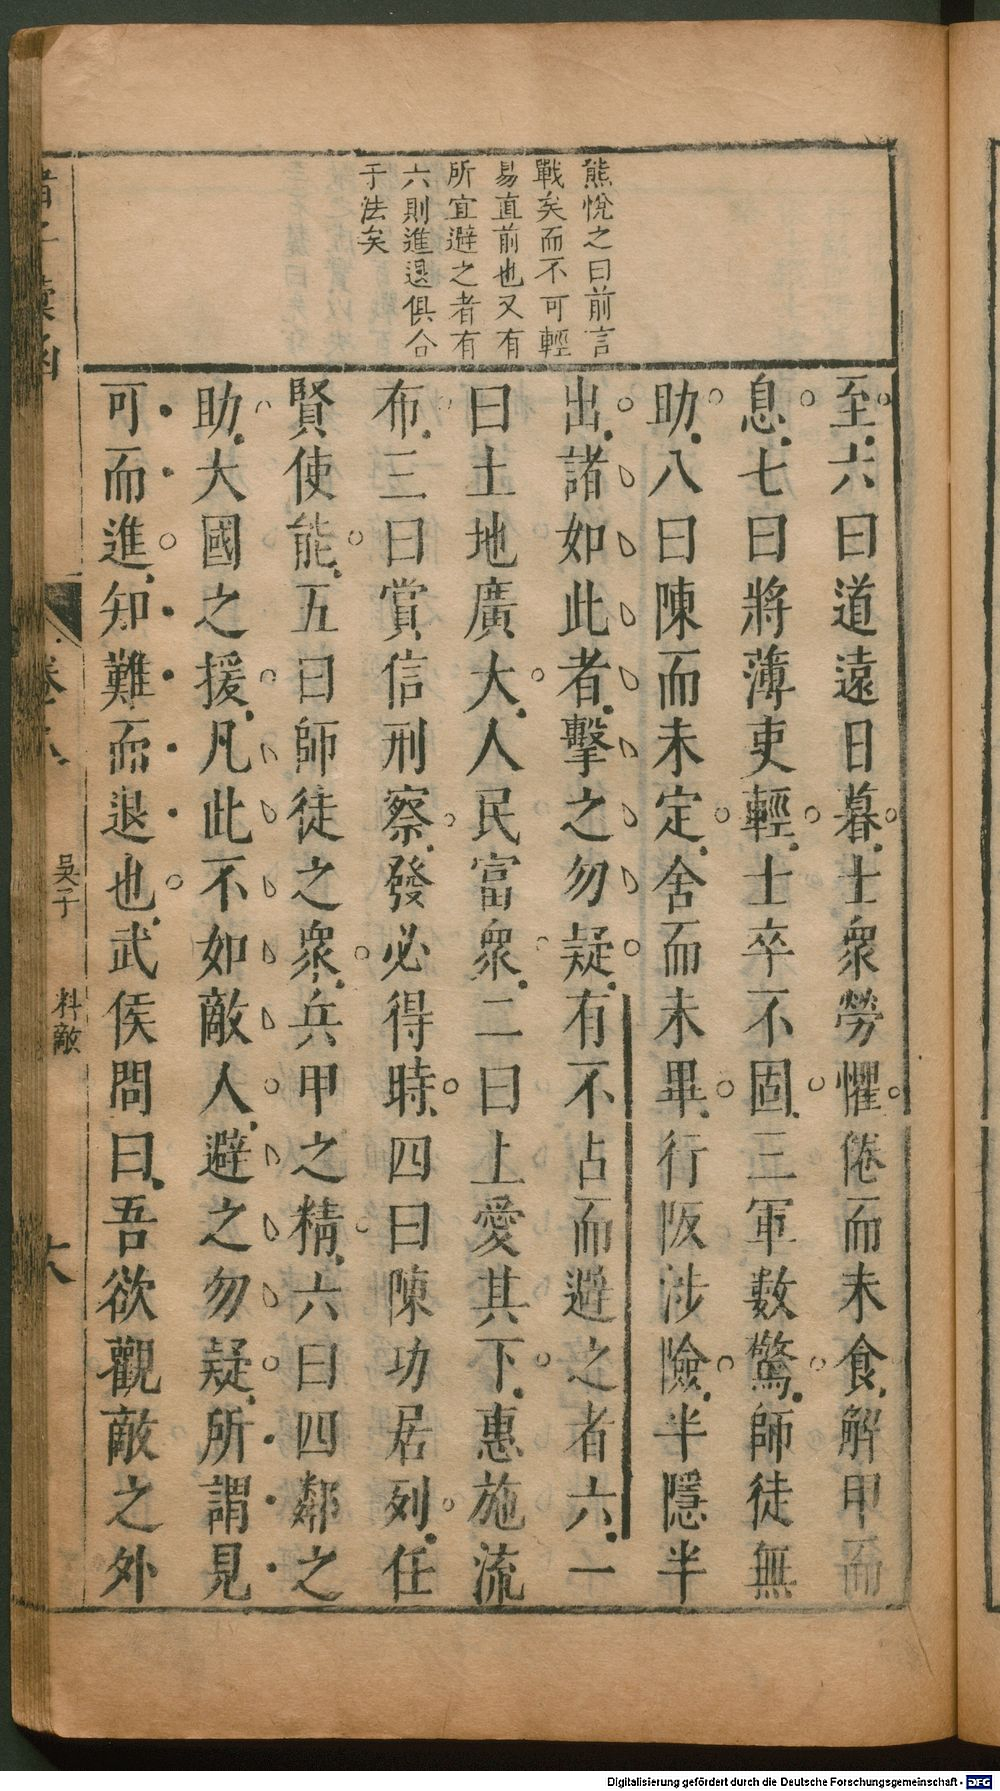 熊悅之曰前言
戰矣而不可輕
易直前也又有
所宜避之者有
六則進退俱合
于法矣
至六曰道遠日暮士衆勞懼倦而未食解甲而
息七曰將薄吏輕士卒不固三軍數驚師徒無
助八曰陳而未定舍而未畢行阪涉險半隱半
出諸如此者擊之勿疑有不占而避之者六一
曰土地廣大人民富衆二曰上愛其下惠施流
布三曰賞信刑察發必得時四曰陳功居列任
賢使能五曰師徒之衆兵甲之精六曰四鄰之
助大國之援凡此不如敵人避之勿疑所謂見
可而進知難而退也武侯問曰吾欲觀敵之外
吳子 料敵
Digitalisierung gefördert durch die Deutsche Forschungsgemeinschaft - DFG